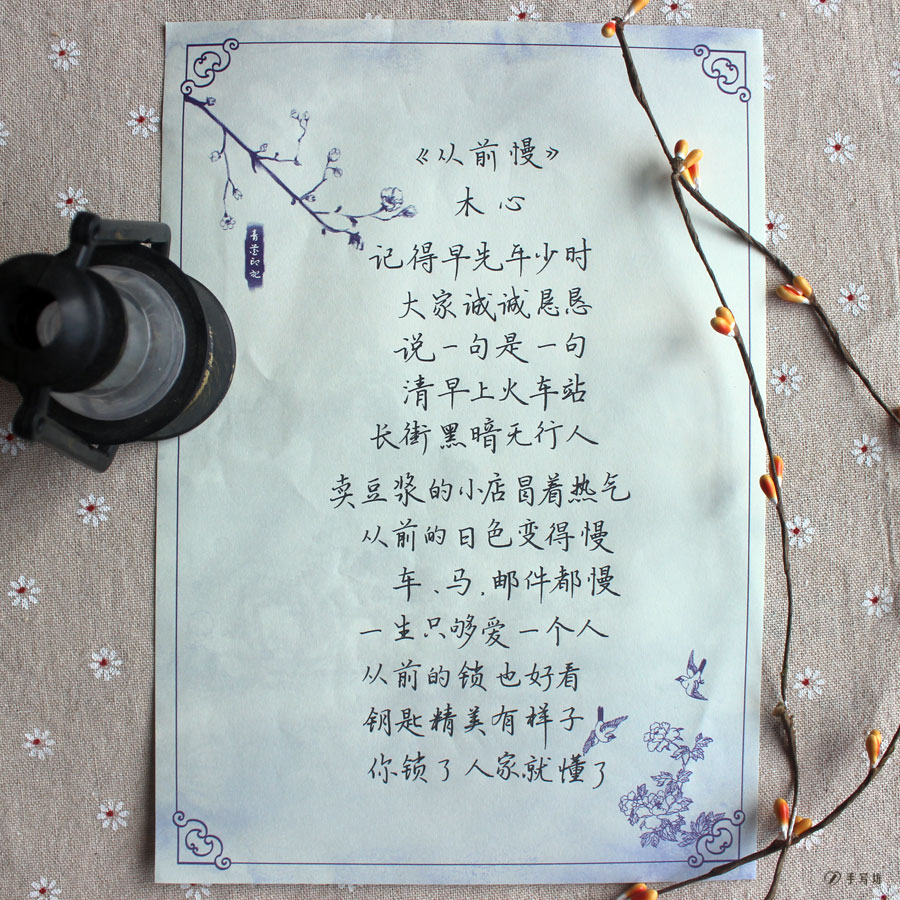 《从前慢》
木心
记得早先年少时
大家诚诚恳恳
说一句是一句
清早上火车站
长街黑暗无行人
卖豆浆的小店冒着热气
从前的日色变得慢
车、马,邮件都慢
一生只够爱一个人
从前的锁也好看
钥匙精美有样子
你锁了人家就懂了
手写坊